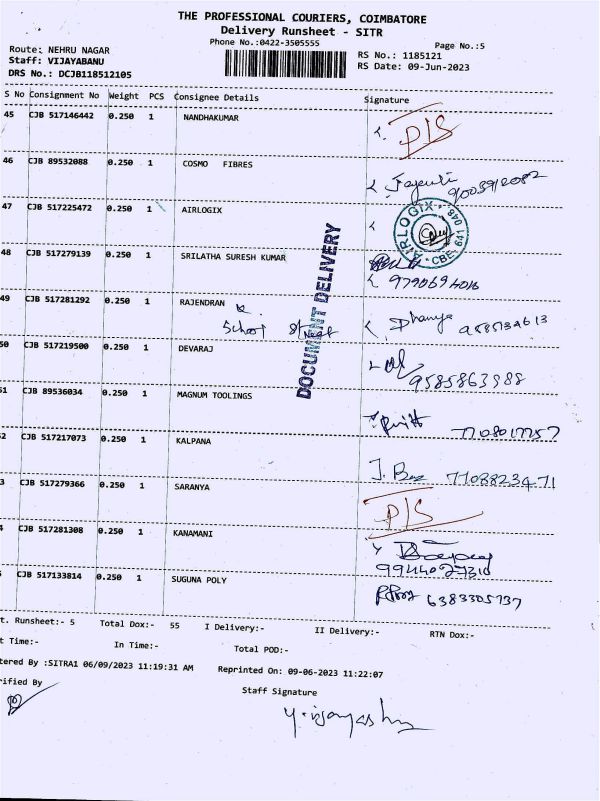 THE PROFESSIONAL COURIERS, COIMBATORE
Delivery Runsheet - SITR
Phone No.:0422-3505555
Page No.:5
Route: NEHRU NAGAR
RS No.: 1185121
Staff: VIJAYABANU
RS Date: 09-Jun-2023
DRS No.: DCJB118512105
S No Consignment No Weight PCS Consignee Details Signature
45 CJB 517146442 0.250 1 NANDHAKUMAR P/S
46 CJB 89532088 0.250 1 COSMO FIBRES
9003912082
47 CJB 517225472 0.250 1 AIRLOGIX
AIRLOGIX CBE- 641 048.
48 CJB 517279139 0.250 1 SRILATHA SURESH KUMAR
9790694016
49 CJB 517281292 0.250 1 RAJENDRAN K.
School Street Dhanya
50 CJB 517219500 0.250 1 DEVARAJ
9585863988
51 CJB 89536034 0.250 1 MAGNUM TOOLINGS
7708017257
2 CJB 517217073 0.250 1 KALPANA
7708823471
3 CJB 517279366 0.250 1 SARANYA P/S
4 CJB 517281308 0.250 1 KANAMANI
9944027310
CJB 517133814 0.250 1 SUGUNA POLY 6383305737
DOCUMENT DELIVERY
t. Runsheet:- 5 Total Dox:- 55 I Delivery:- II Delivery:- RTN Dox:-
t Time:- In Time:- Total POD:-
tered By :SITRA1 06/09/2023 11:19:31 AM Reprinted On: 09-06-2023 11:22:07
rified By Staff Signature